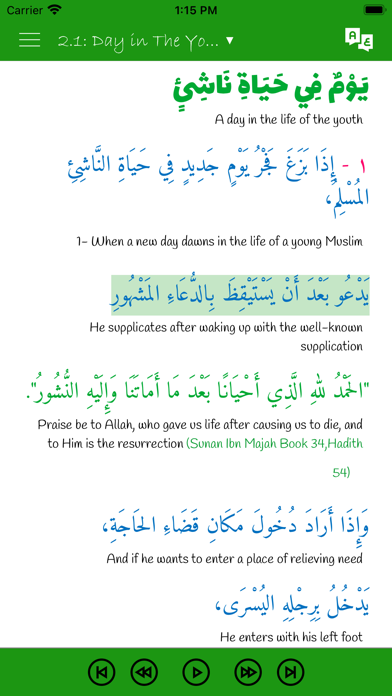 Carrier 1:15 PM
2.1: Day in The Yo... ▼
A ع
يَوْمٌ فِي حَيَاةِ نَاشِئٍ
A day in the life of the youth
١ - إِذَا بَزَغَ فَجْرُ يَوْمٍ جَدِيدٍ فِي حَيَاةِ النَّاشِئِ
المُسْلِمِ،
1- When a new day dawns in the life of a young Muslim
يَدْعُو بَعْدَ أَنْ يَسْتَيْقِظَ بِالدُّعَاءِ المَشْهُورِ
He supplicates after waking up with the well-known
supplication
"الحَمْدُ للهِ الَّذِي أَحْيَانًا بَعْدَ مَا أَمَاتَنَا وَإِلَيْهِ النُّشُورُ".
Praise be to Allah, who gave us life after causing us to die, and
to Him is the resurrection (Sunan Ibn Majah Book 34,Hadith
54)
وَإِذَا أَرَادَ دُخُولَ مَكَانِ قَضَاءِ الحَاجَةِ،
And if he wants to enter a place of relieving need
يَدْخُلُ بِرِجْلِهِ اليُسْرَى،
He enters with his left foot